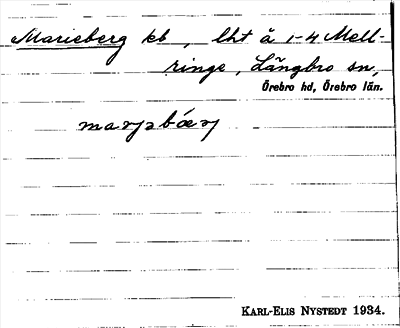 Marieberg kb, lht å 1-4 Mell-
ringe, Längbro sn,
Örebro hd, Örebro län.
KARL-ELIS NYSTEDT 1934.